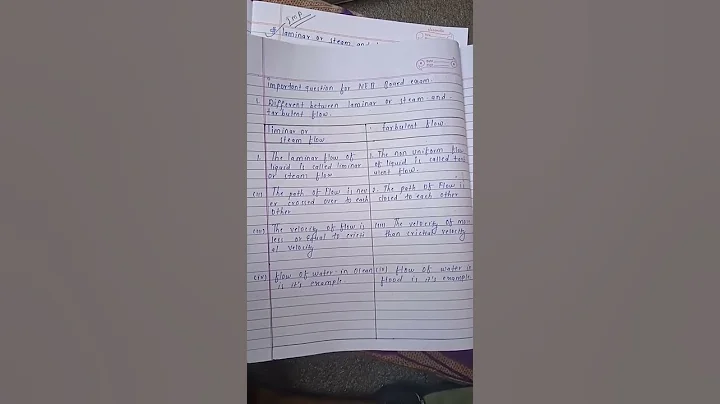 Imp
of laminar or steam and
Important question for NEB Board exam.
1. Different between laminar or steam and
turbulent flow.
liminar or
steam flow
turbulent flow
1. The laminar flow of
liquid is called liminar
or steam flow
1. The non uniform flow
of liquid is called turb
ulent flow.
(ii) The path of Flow is nev
er crossed over to each
other
2. The path of Flow is
closed to each other
(iii) The velocity of flow is
less or Equal to critic
al velocity
(iii) The velocity of mor
than crictical velocity
(iv) flow of water in Ocean
is it's example
(iv) flow of water in
flood is it's example